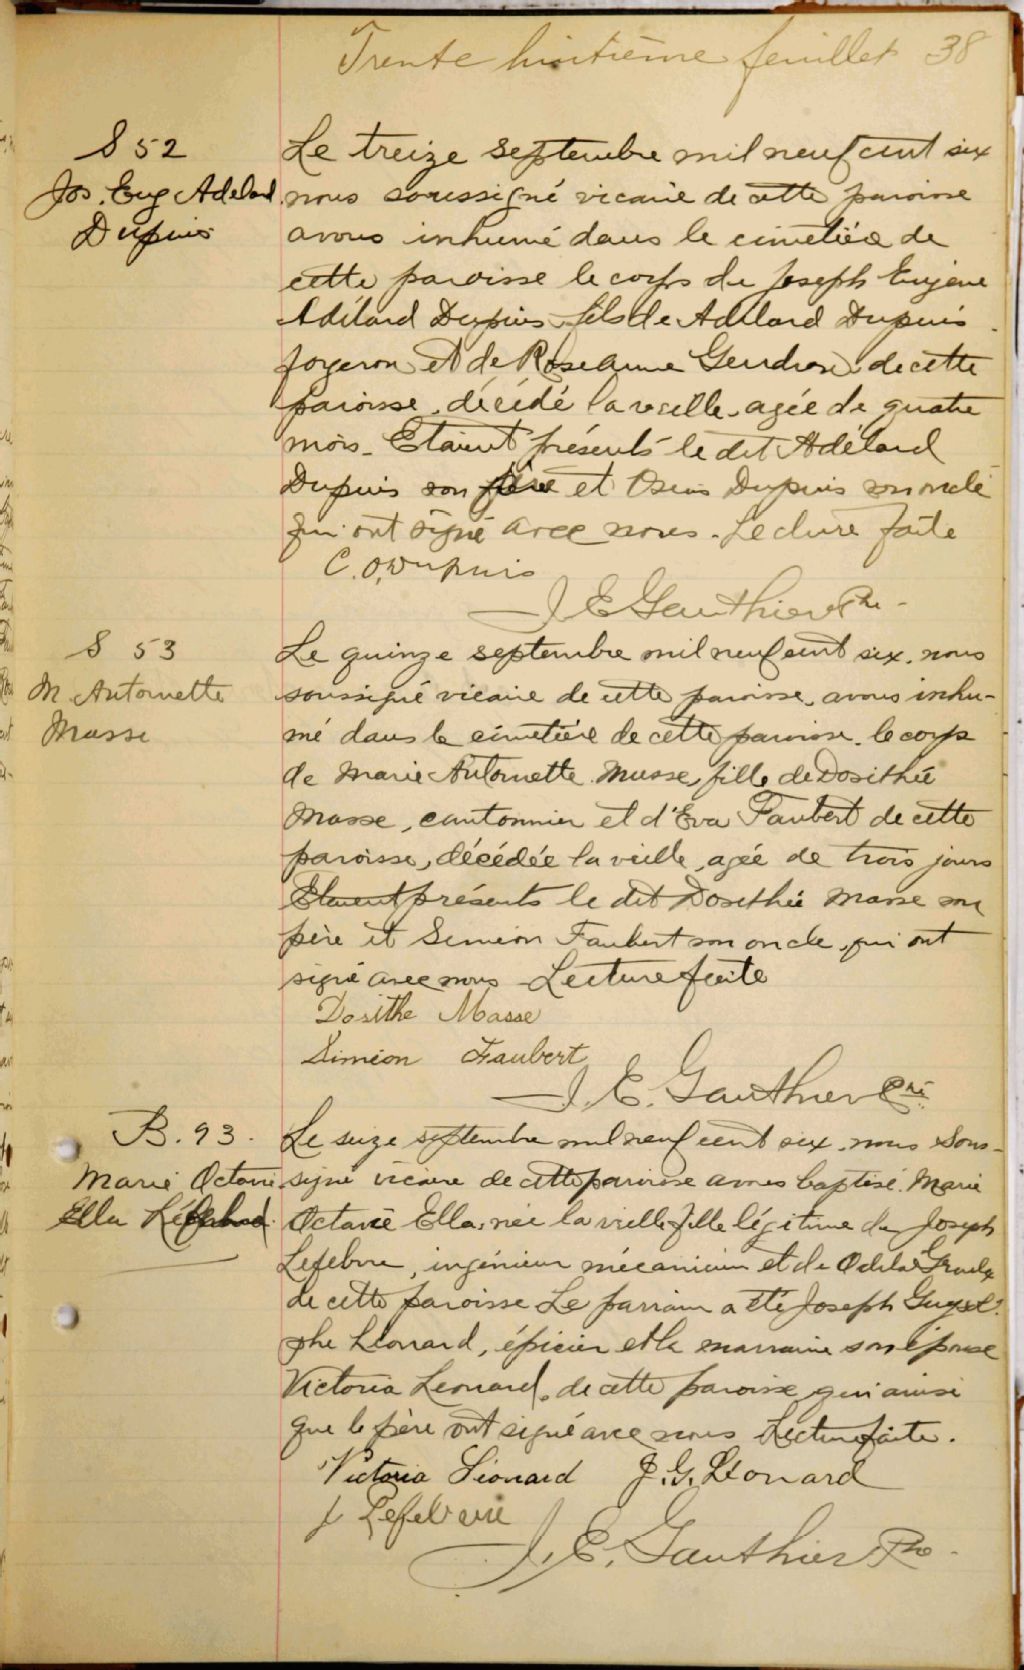 Trente huitième feuillet 38
S 52
Jos. Eug Adelard
Dupuis
Le treize septembre mil neuf cent six
nous soussigné vicaire de cette paroisse
avons inhumé dans le cimetière de
cette paroisse le corps de Joseph Eugène
Adélard Dupuis fils de Adélard Dupuis
forgeron et de Roseanna Gendron de cette
paroisse, décédé la veille, agée de quatre
mois. Etaient présents le dit Adélard
Dupuis son père et Dupuis son oncle
qui ont signé avec nous. Lecture faite
C. O. Dupuis
J E Gauthier Ptre
S 53
M Antoinette
Masse
Le quinze septembre mil neuf cent six, nous
soussigné vicaire de cette paroisse, avons inhu-
mé dans le cimetière de cette paroisse, le corps
de Marie Antoinette Masse, fille de Dosithée
Masse, cantonnier et d'Eva Faubert de cette
paroisse, décédée la veille, agée de trois jours
Etaient présents le dit Dosithée Masse son
père et Simeon Faubert son oncle, qui ont
signé avec nous Lecture faite
Dosithe Masse
Simeon Faubert
J. E. Gauthier Ptre
B. 93.
Marie Octavie
Ella
Le seize septembre mil neuf cent six, nous sous-
signé vicaire de cette paroisse avons baptisé Marie
Octavie Ella, née la vielle fille légitime de Joseph
Lefebvre, ingénieur mécanicien et de Odila
de cette paroisse Le parrain a été Joseph
Léonard, épicier et la marraine son épouse
Victoria Leonard, de cette paroisse qui ainsi
que le père ont signé avec nous Lecture faite.
Victoria Léonard J. G. Léonard
J Lefebvre
J. E. Gauthier Ptre